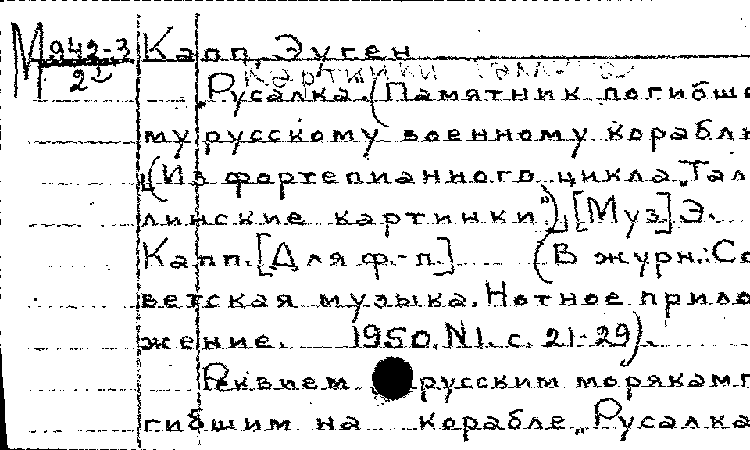 М 942-3
2
Капп, Эуген
Картинки Таллина
„Русалка. (Памятник погибше
му русскому военному корабл
[(Из фортепианного цикла „Тал
линские картинки")], [Муз] Э.
Капп. [Для ф.-п.] (В журн.: Со
ветская музыка. Нотное прило
жение. 1950. N1. с. 21-29).
Реквием русским морякам п
гибшим на корабле „Русалка